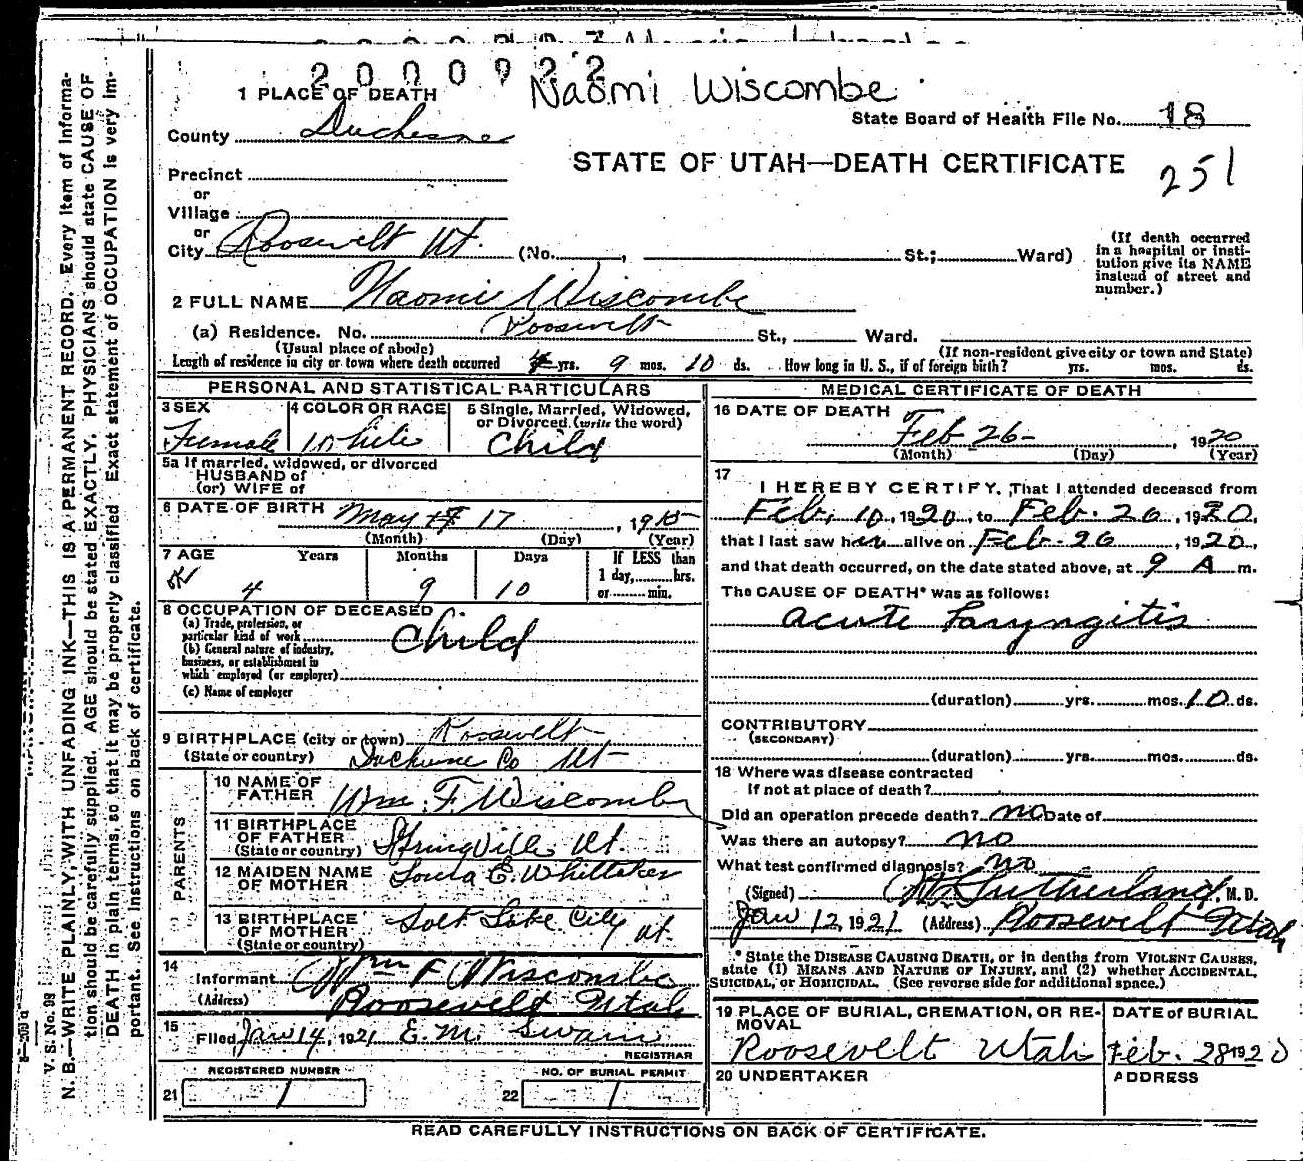 2000922
Naomi Wiscombe
1 PLACE OF DEATH
State Board of Health File No. 18
County Duchesne
STATE OF UTAH—DEATH CERTIFICATE
251
Precinct
or
Village
or
City Roosevelt Ut. (No. , St.; Ward)
(If death occurred in a hospital or insti-
tution give its NAME
instead of street and
number.)
2 FULL NAME Naomie Wiscombe
(a) Residence. No. Roosevelt St., Ward.
(Usual place of abode)
(If non-resident give city or town and State)
Length of residence in city or town where death occurred 4 yrs. 9 mos. 10 ds. How long in U. S., if of foreign birth? yrs. mos. ds.
PERSONAL AND STATISTICAL PARTICULARS
3 SEX
Female
4 COLOR OR RACE
White
5 Single, Married, Widowed,
or Divorced. (write the word)
Child
5a If married, widowed, or divorced
HUSBAND of
(or) WIFE of
6 DATE OF BIRTH May 17, 1915
(Month) (Day) (Year)
7 AGE Years Months Days If LESS than
1 day, hrs.
or min.
4 9 10
8 OCCUPATION OF DECEASED
(a) Trade, profession, or
particular kind of work
Child
(b) General nature of industry,
business, or establishment in
which employed (or employer)
(c) Name of employer
9 BIRTHPLACE (city or town) Roosevelt
(State or country) Duchesne Co Ut
PARENTS
10 NAME OF
FATHER Wm. F. Wiscombe
11 BIRTHPLACE
OF FATHER
(State or country) Springville Ut.
12 MAIDEN NAME
OF MOTHER Louisa E. Whittaker
13 BIRTHPLACE
OF MOTHER
(State or country) Salt Lake City Ut.
14
Informant Wm F Wiscombe
(Address) Roosevelt Utah
15
Filed Jan 14, 1921 E. M. Swain
REGISTRAR
REGISTERED NUMBER
21 1
NO. OF BURIAL PERMIT
22 1
MEDICAL CERTIFICATE OF DEATH
16 DATE OF DEATH
Feb 26, 1920
(Month) (Day) (Year)
17
I HEREBY CERTIFY, That I attended deceased from
Feb. 10, 1920, to Feb. 26, 1920,
that I last saw her alive on Feb. 26, 1920,
and that death occurred, on the date stated above, at 9 A m.
The CAUSE OF DEATH* was as follows:
Acute Laryngitis
(duration) yrs. mos. 10 ds.
CONTRIBUTORY
(SECONDARY)
(duration) yrs. mos. ds.
18 Where was disease contracted
If not at place of death?
Did an operation precede death? no Date of
Was there an autopsy? no
What test confirmed diagnosis? no
(Signed) Sutherland, M. D.
Jan 12, 1921 (Address) Roosevelt Utah
* State the DISEASE CAUSING DEATH, or in deaths from VIOLENT CAUSES,
state (1) MEANS AND NATURE OF INJURY, and (2) whether ACCIDENTAL,
SUICIDAL, or HOMICIDAL. (See reverse side for additional space.)
19 PLACE OF BURIAL, CREMATION, OR RE-
MOVAL
Roosevelt Utah
DATE of BURIAL
Feb. 28 1920
20 UNDERTAKER
ADDRESS
READ CAREFULLY INSTRUCTIONS ON BACK OF CERTIFICATE.
V. S. No. 98
N. B.—WRITE PLAINLY, WITH UNFADING INK—THIS IS A PERMANENT RECORD. Every item of informa-
tion should be carefully supplied. AGE should be stated EXACTLY. PHYSICIANS should state CAUSE OF
DEATH in plain terms, so that it may be properly classified. Exact statement of OCCUPATION is very im-
portant. See instructions on back of certificate.